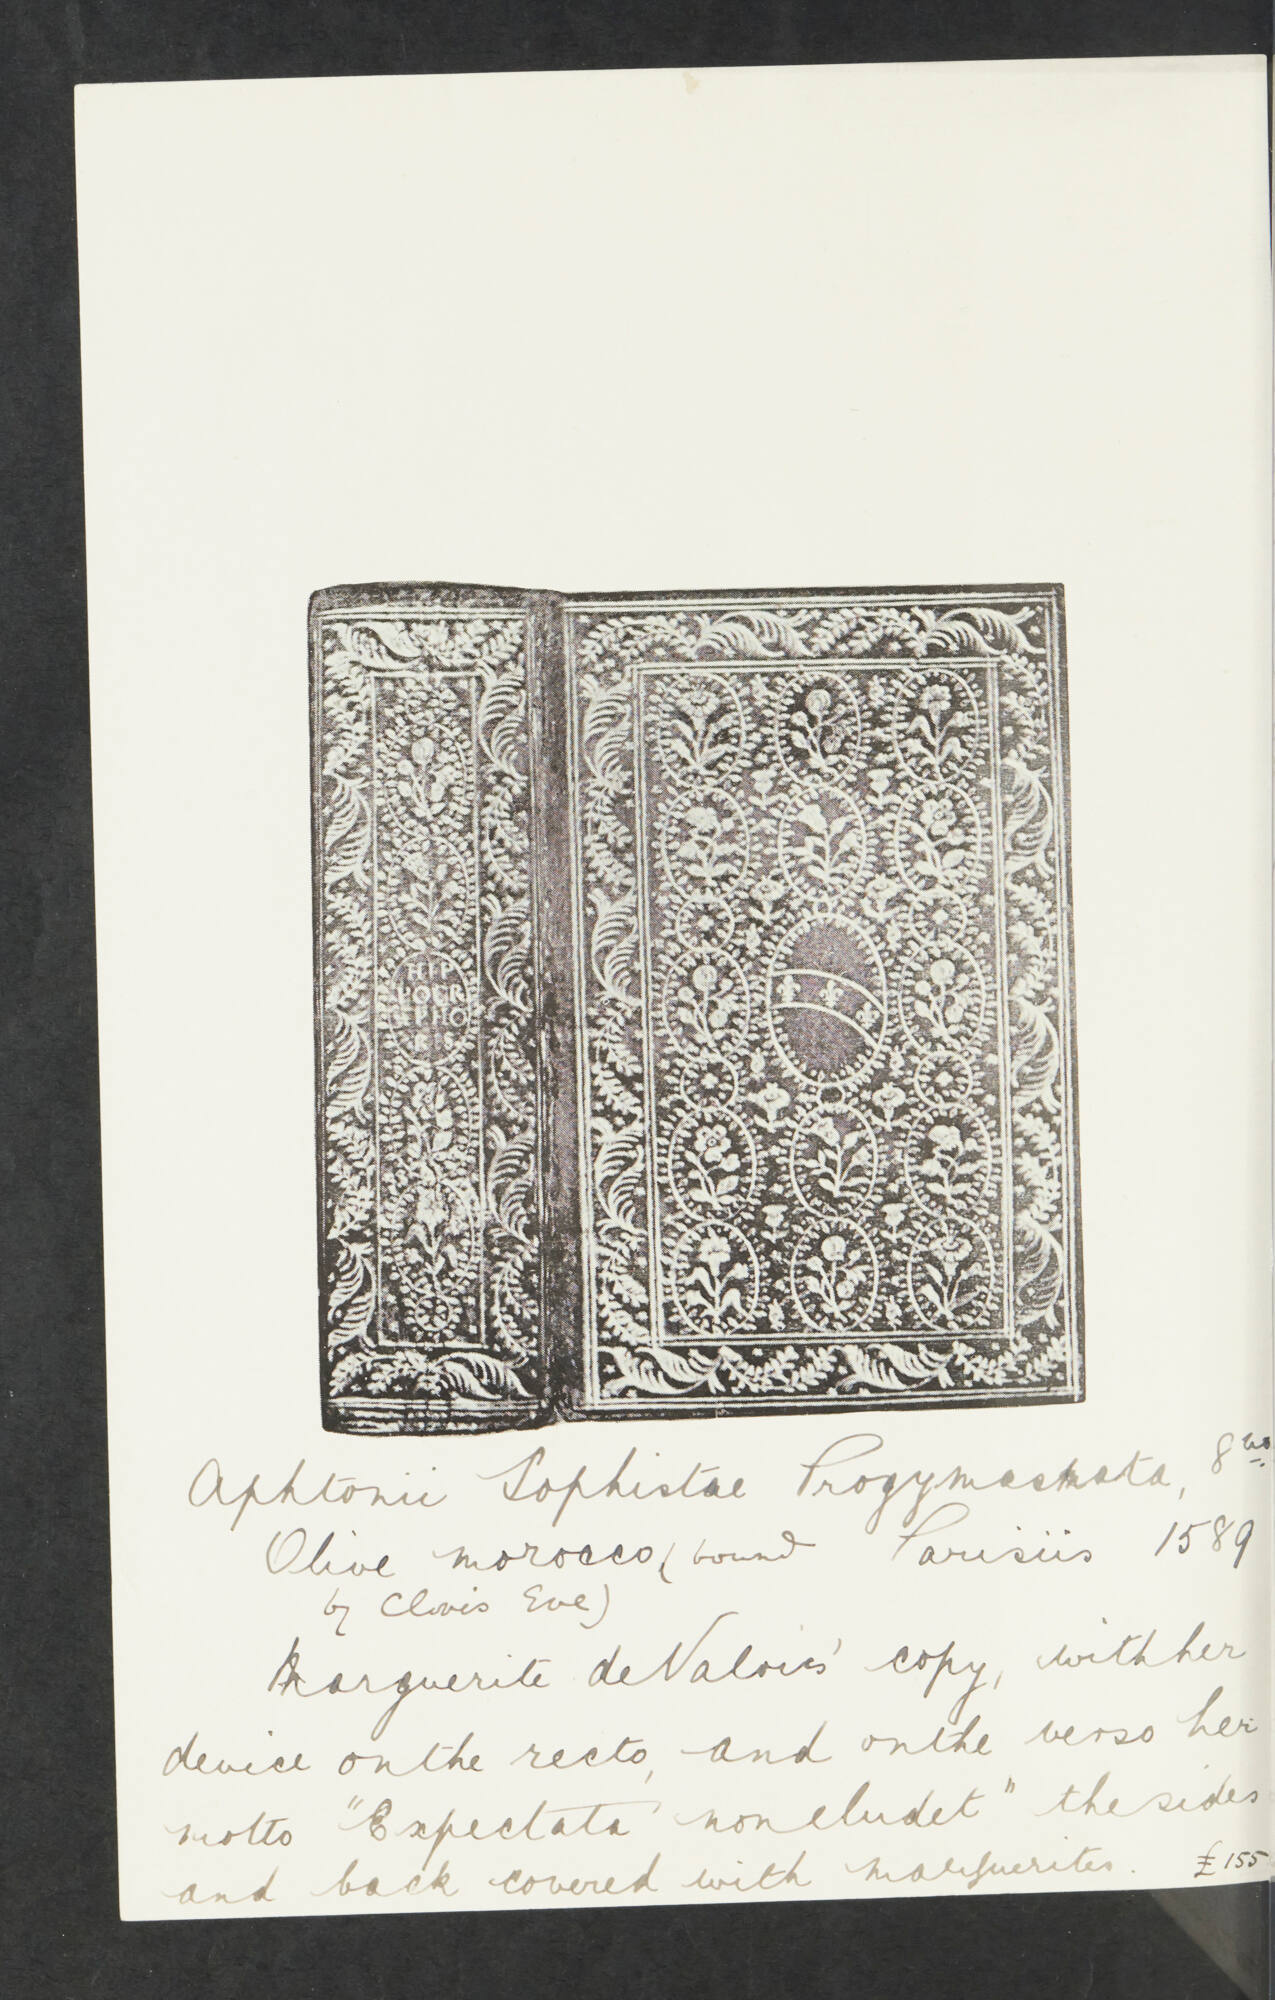 HIP
POCR
EPHO
RIS
Aphtonii Sophistae Progymasmata, 8vo.
Olive morocco, (bound Parisiis 1589
by Clovis Eve)
Marguerite de Valois' copy, with her
device on the recto, and on the verso her
motto "Expectata non eludet" the sides
and back covered with marguerites. £155